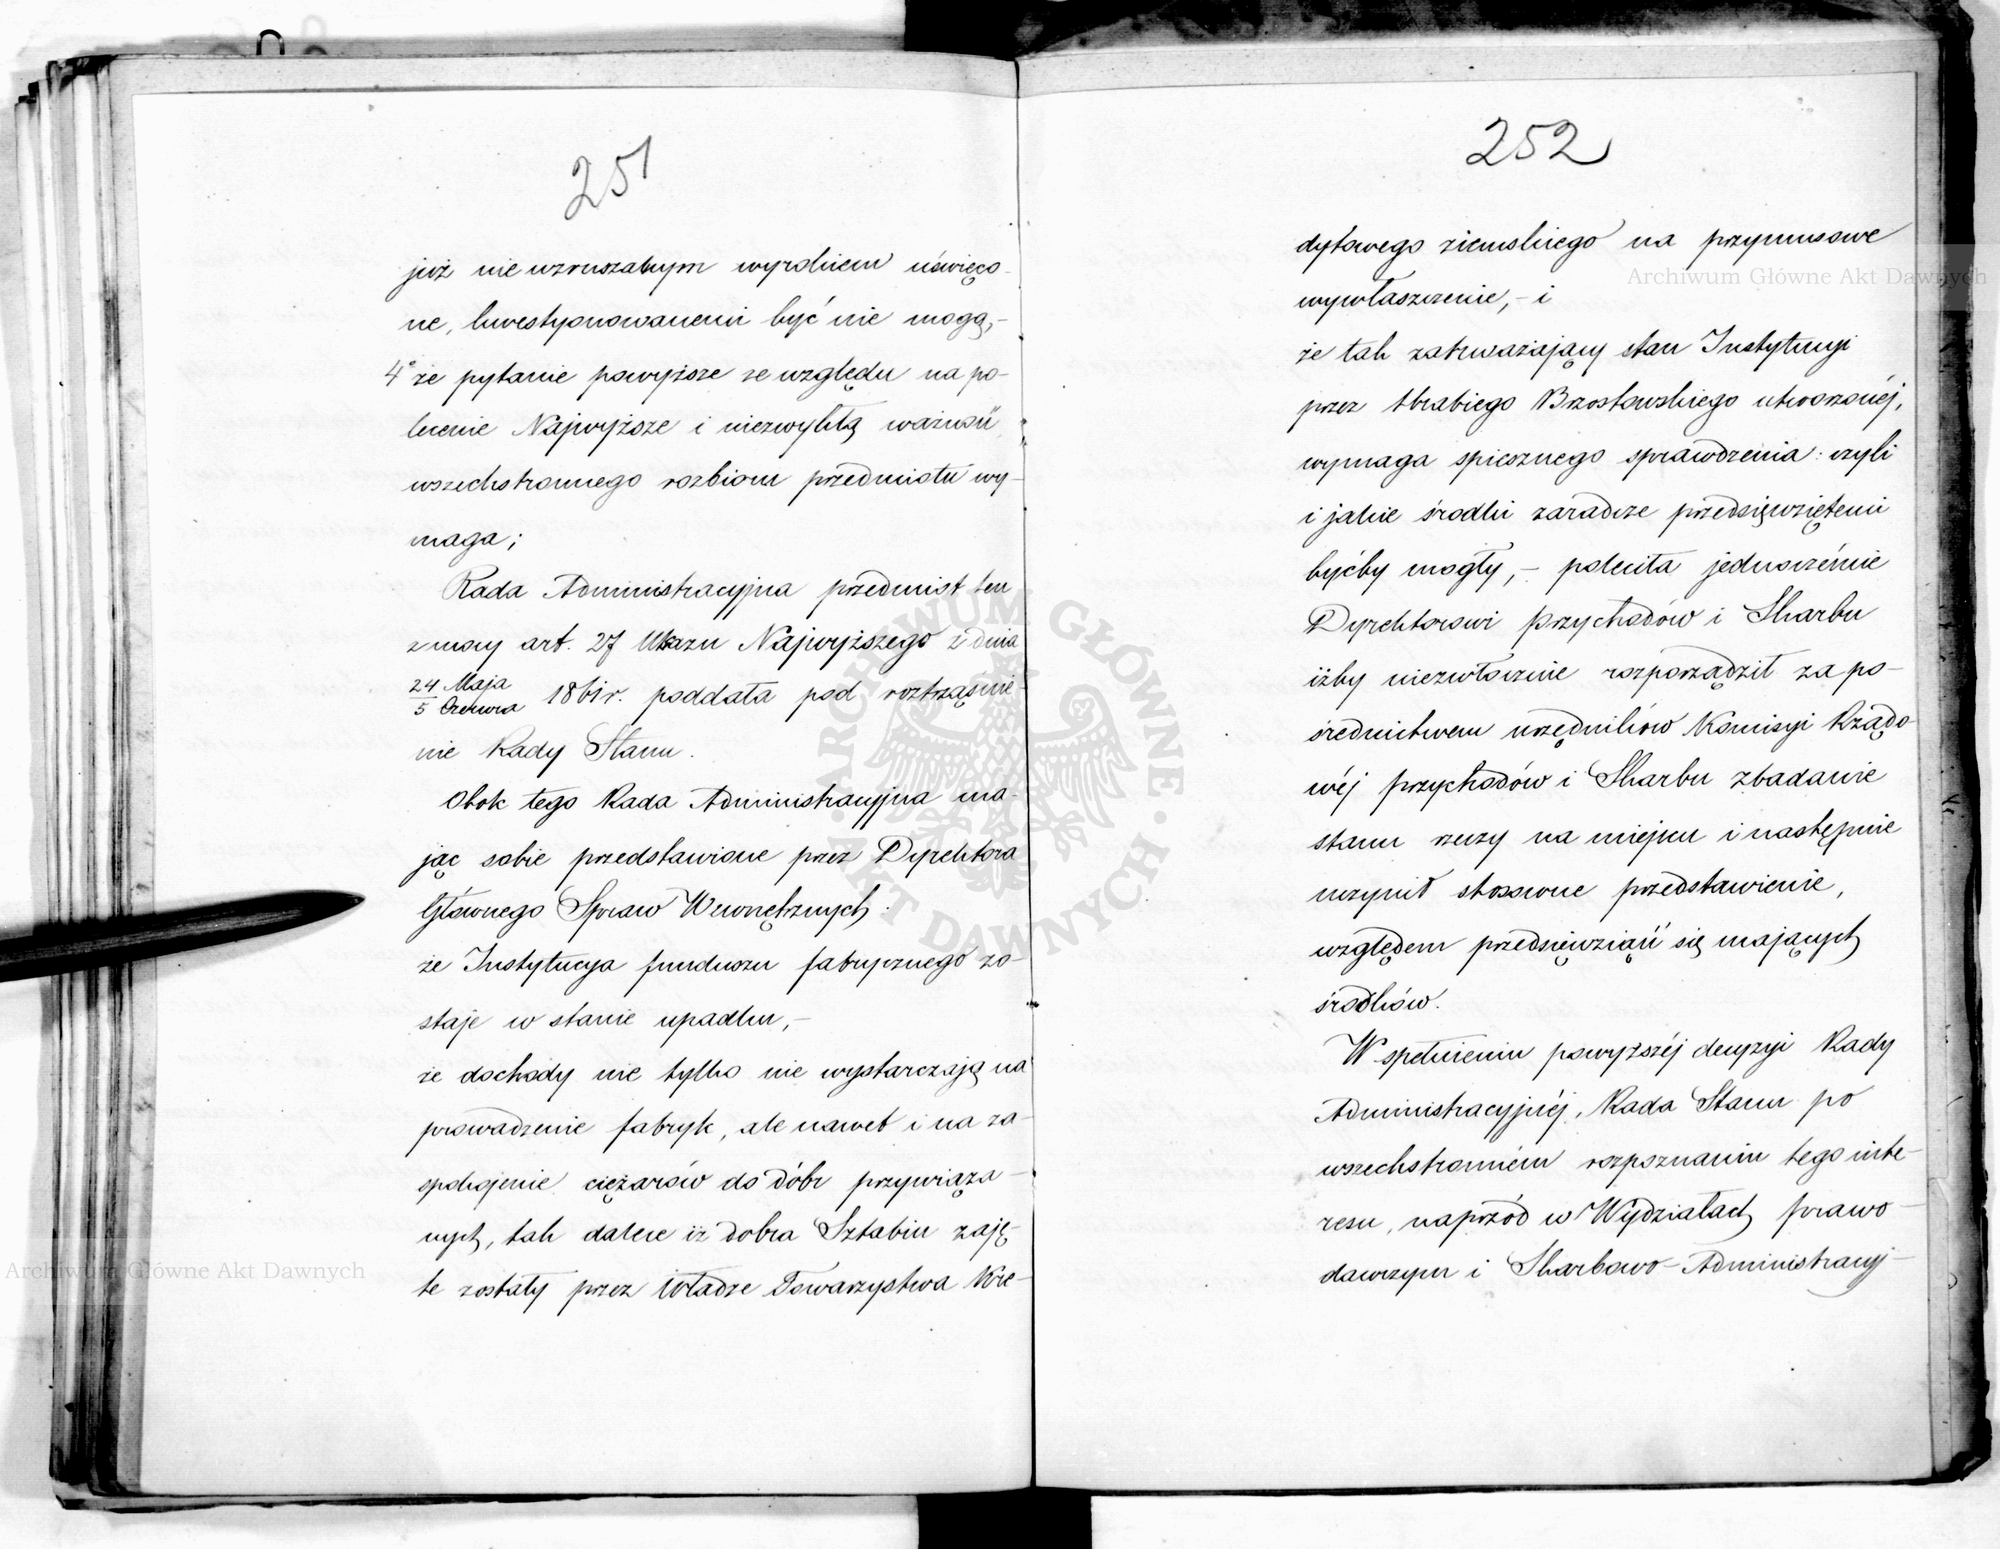 251
już nie wzruszalnym wyrokiem uświęco-
ne, kwestyonowanemi być nie mogą,-
4° że pytanie powyższe ze względu na po-
lecenie Najwyższe i niezwykłą ważność
wszechstronnego rozbioru przedmiotu wy-
maga;
Rada Administracyjna przedmiot ten
z mocy art. 27 Ukazu Najwyższego z dnia
24 Maja / 5 Czerwca 1861 r. poddała pod roztrząśnie-
nie Rady Stanu.
Obok tego Rada Administracyjna ma-
jąc sobie przedstawione przez Dyrektora
Głównego Spraw Wewnętrznych:
że Instytucya funduszu fabrycznego zo-
staje w stanie upadku,-
że dochody nie tylko nie wystarczają na
prowadzenie fabryk, ale nawet i na za-
spokojenie ciężarów do dóbr przywiąza-
nych, tak dalece iż dobra Sztabin zaję-
te zostały przez Władze Towarzystwa Kre-
252
dytowego ziemskiego na przymusowe
wywłaszczenie,- i
że tak zatrważający stan Instytucyi
przez Hrabiego Brzostowskiego utworzonéj,
wymaga spiesznego sprawdzenia: czyli
i jakie środki zaradcze przedsięwziętemi
byćby mogły,- poleciła jednocześnie
Dyrektorowi Przychodów i Skarbu
iżby niezwłocznie rozporządził za po-
średnictwem urzędników Komisyi Rządo-
wéj Przychodów i Skarbu zbadanie
stanu rzeczy na miejscu i następnie
uczynił stosowne przedstawienie,
względem przedsięwziąść się mających
środków.
W spełnieniu powyższéj decyzyi Rady
Administracyjnéj, Rada Stanu po
wszechstronném rozpoznaniu tego inte-
resu, naprzód w Wydziałach Prawo-
dawczym i Skarbowo-Administracyj-
Archiwum Główne Akt Dawnych
Archiwum Główne Akt Dawnych
ARCHIWUM GŁÓWNE AKT DAWNYCH